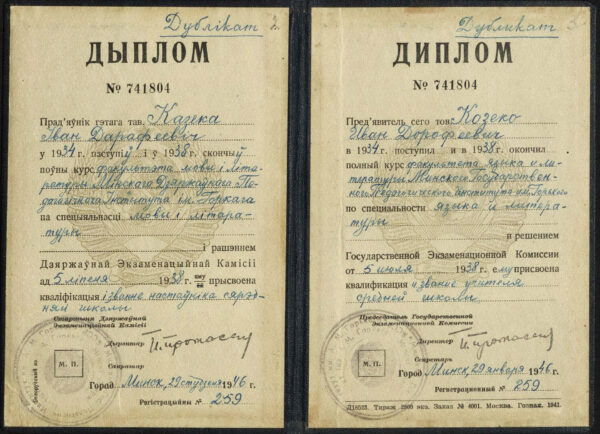 Дублікат 2
ДЫПЛОМ
№ 741804
Прад'яўнік гэтага тав. Казека
Іван Дарафеевіч
у 1934 г. паступіў і ў 1938 г. скончыў
поўны курс факультэта мовы і літа-
ратуры Мінскага Дзяржаўнага Пе-
дагагічнага Інстытута ім. Горкага
па спецыяльнасці мовы і літара-
туры
і рашэннем
Дзяржаўнай Экзаменацыйнай Камісіі
ад 5 ліпеня 1938 г. яму прысвоена
кваліфікацыя і званне настаўніка сярэд-
няй школы
Старшыня Дзяржаўнай
Экзаменацыйнай Камісіі
Дырэктар
Сакратар
М. П.
Горад Мінск, 29 студзеня 1946 г.
Рэгістрацыйны № 259
Беларускій яз
Дубликат 3
ДИПЛОМ
№ 741804
Пред'явитель сего тов. Козеко
Иван Дорофеевич
в 1934 г. поступил и в 1938 г. окончил
полный курс факультета языка и ли-
тературы Минского Государствен-
ного Педагогического института им. Горького
по специальности языка и литера-
туры
и решением
Государственной Экзаменационной Комиссии
от 5 июля 1938 г. ему присвоена
квалификация и звание учителя
средней школы
Председатель Государственной
Экзаменационной Комиссии
Директор
Секретарь
М. П.
Город Минск, 29 января 1946 г.
Регистрационный № 259
Л18525. Тираж 2900 экз. Заказ № 4001. Москва. Гознак. 1941.